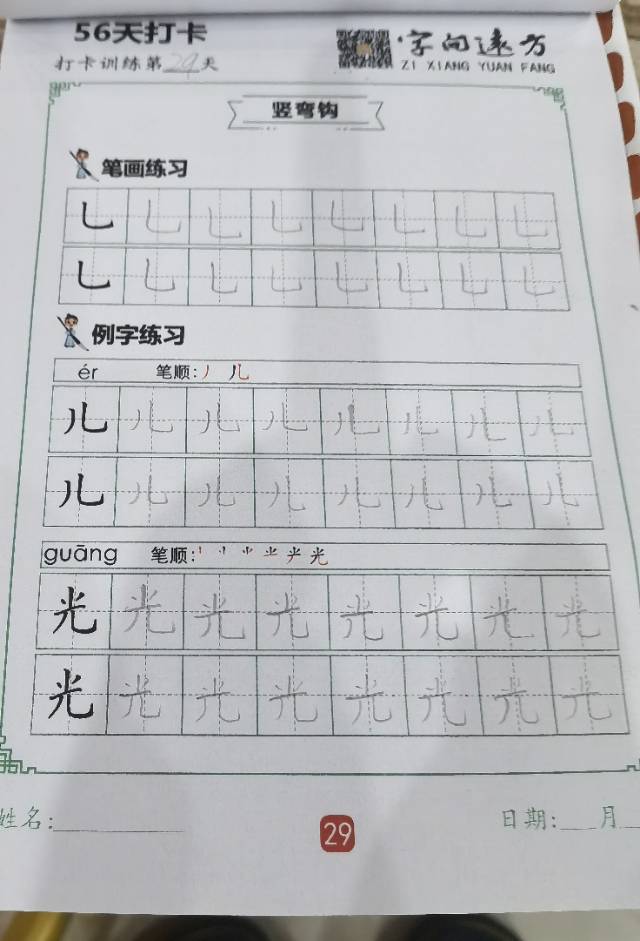 56天打卡
字向远方
打卡训练第29天
ZI XIANG YUAN FANG
竖弯钩
笔画练习
乚 乚 乚 乚 乚 乚 乚 乚
乚 乚 乚 乚 乚 乚 乚 乚
例字练习
ér 笔顺:丿 儿
儿 儿 儿 儿 儿 儿 儿 儿
儿 儿 儿 儿 儿 儿 儿 儿
guāng 笔顺: 光
光 光 光 光 光 光 光 光
光 光 光 光 光 光 光 光
姓名: 29 日期: 月